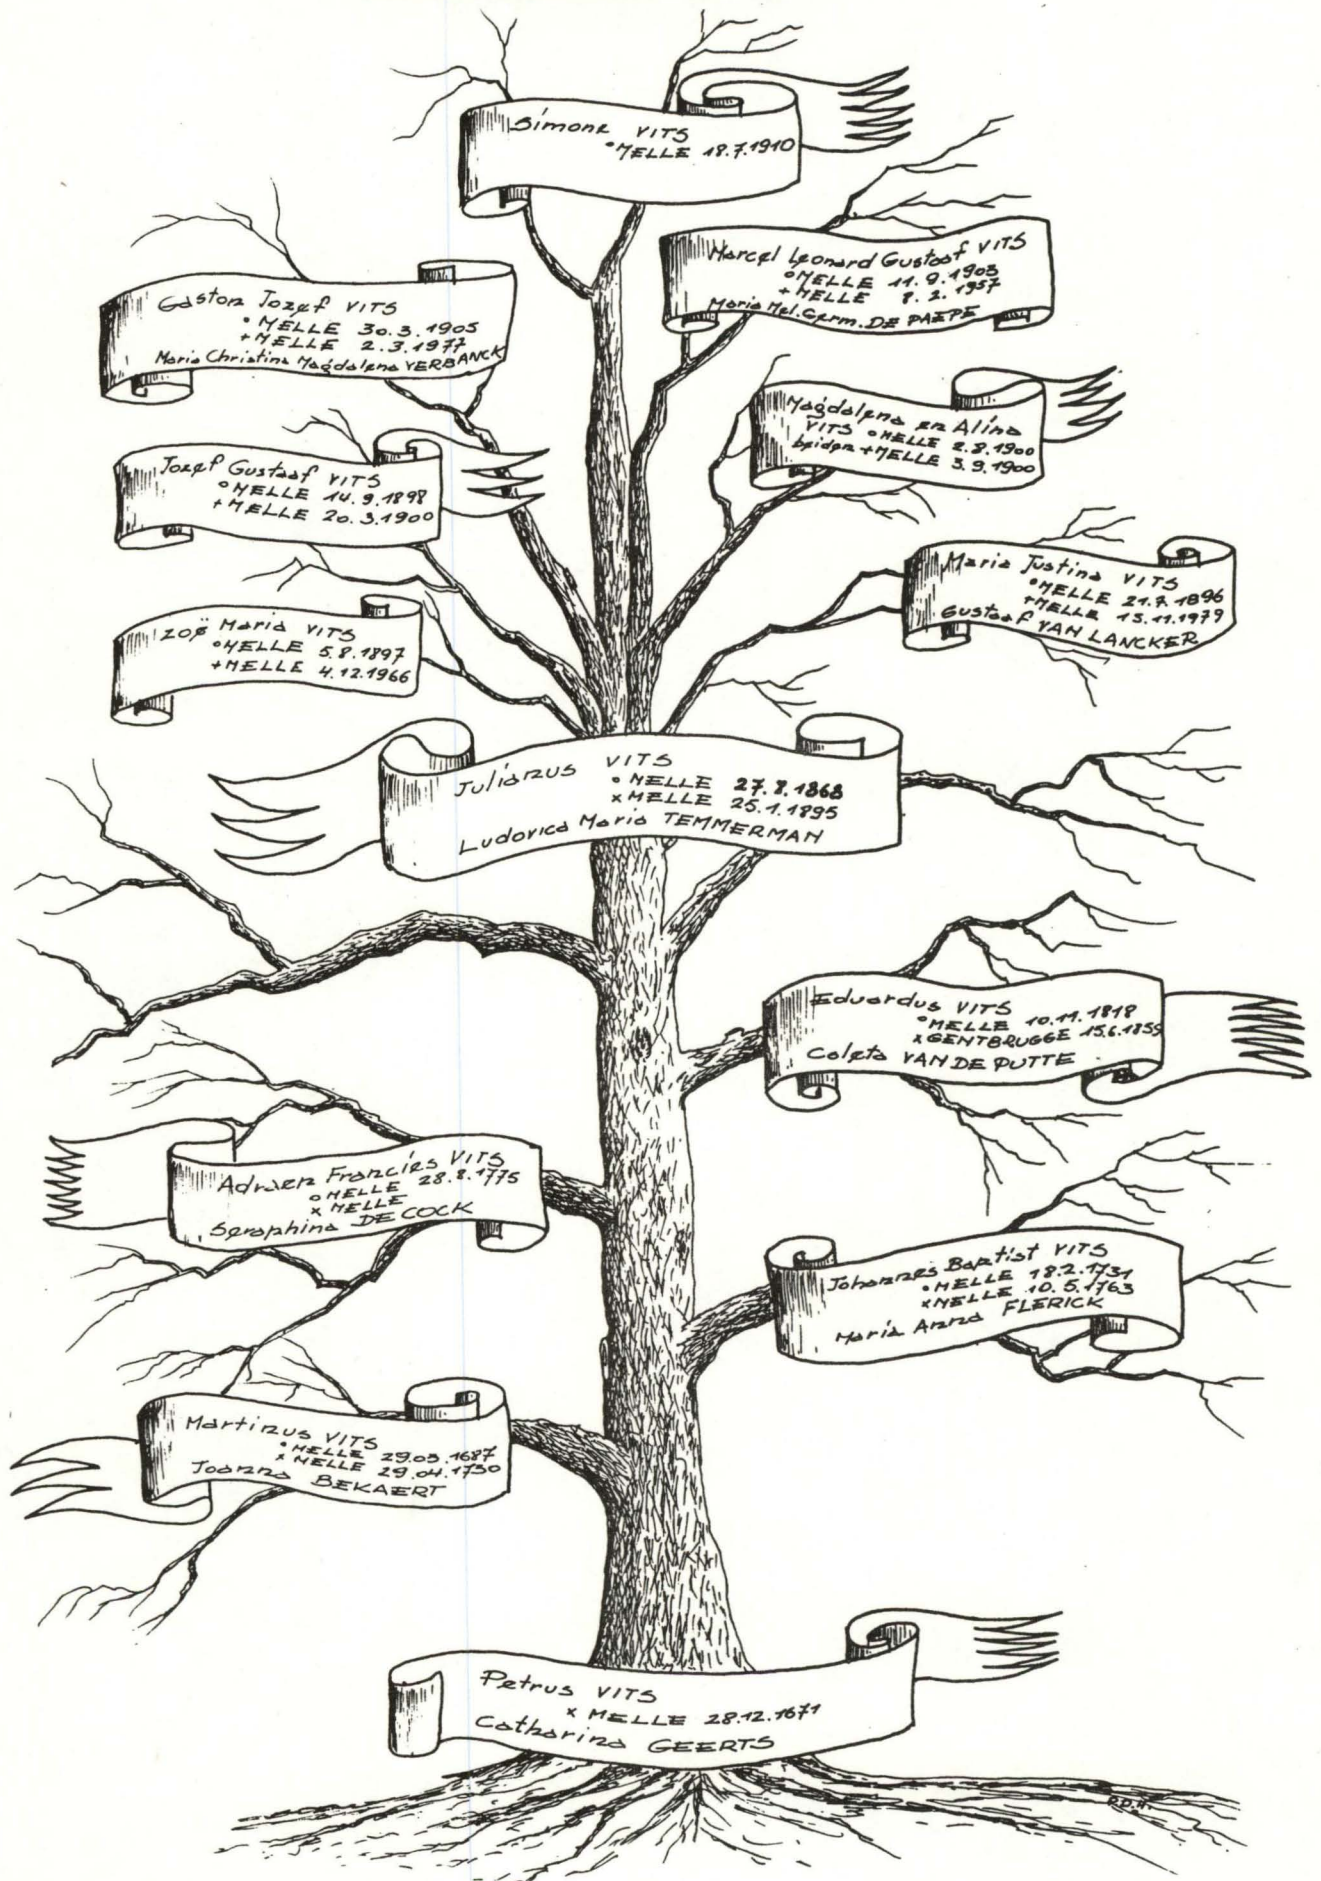 Simone VITS
°MELLE 18.7.1910
Marcel Leonard Gustaaf VITS
°MELLE 11.9.1903
+MELLE 8.2.1957
Maria Mel.Germ.DE PAEPE
Gaston Jozef VITS
°MELLE 30.3.1905
+MELLE 2.3.1977
Maria Christina Magdalena VERBANCK
Magdalena en Alina
VITS °MELLE 2.8.1900
beiden +MELLE 3.9.1900
Jozef Gustaaf VITS
°MELLE 14.9.1898
+MELLE 20.3.1900
Maria Justina VITS
°MELLE 21.7.1896
+MELLE 15.11.1979
Gustaaf VAN LANCKER
Zoë Maria VITS
°MELLE 5.8.1897
+MELLE 4.12.1966
Julianus VITS
°MELLE 27.8.1868
xMELLE 25.1.1895
Ludovica Maria TEMMERMAN
Eduardus VITS
°MELLE 10.11.1818
xGENTBRUGGE 15.6.1859
Coleta VAN DE PUTTE
Adriaen Francies VITS
°MELLE 28.8.1775
x MELLE
Seraphina DE COCK
Johannes Baptist VITS
°MELLE 18.2.1731
xMELLE 10.5.1763
Maria Anna FLERICK
Martinus VITS
°MELLE 29.03.1687
x MELLE 29.04.1730
Joanna BEKAERT
Petrus VITS
x MELLE 28.12.1671
Catharina GEERTS